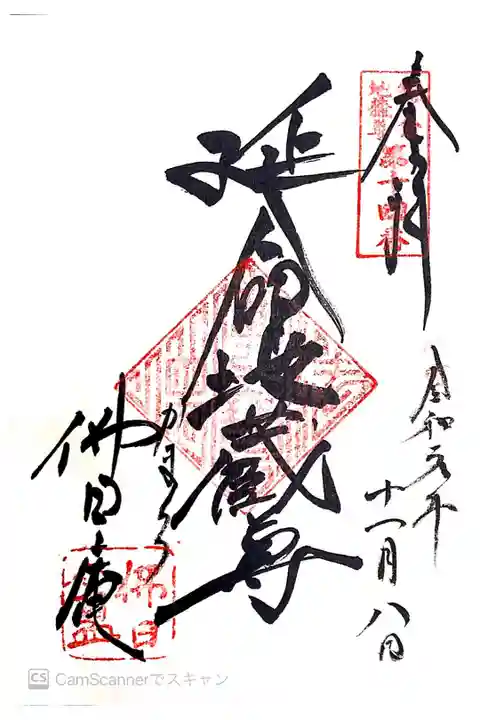 奉拝
第十四番
地蔵尊
令和元年
十一月八日
延命地蔵尊
かまくら
佛日庵
佛日
CamScannerでスキャン